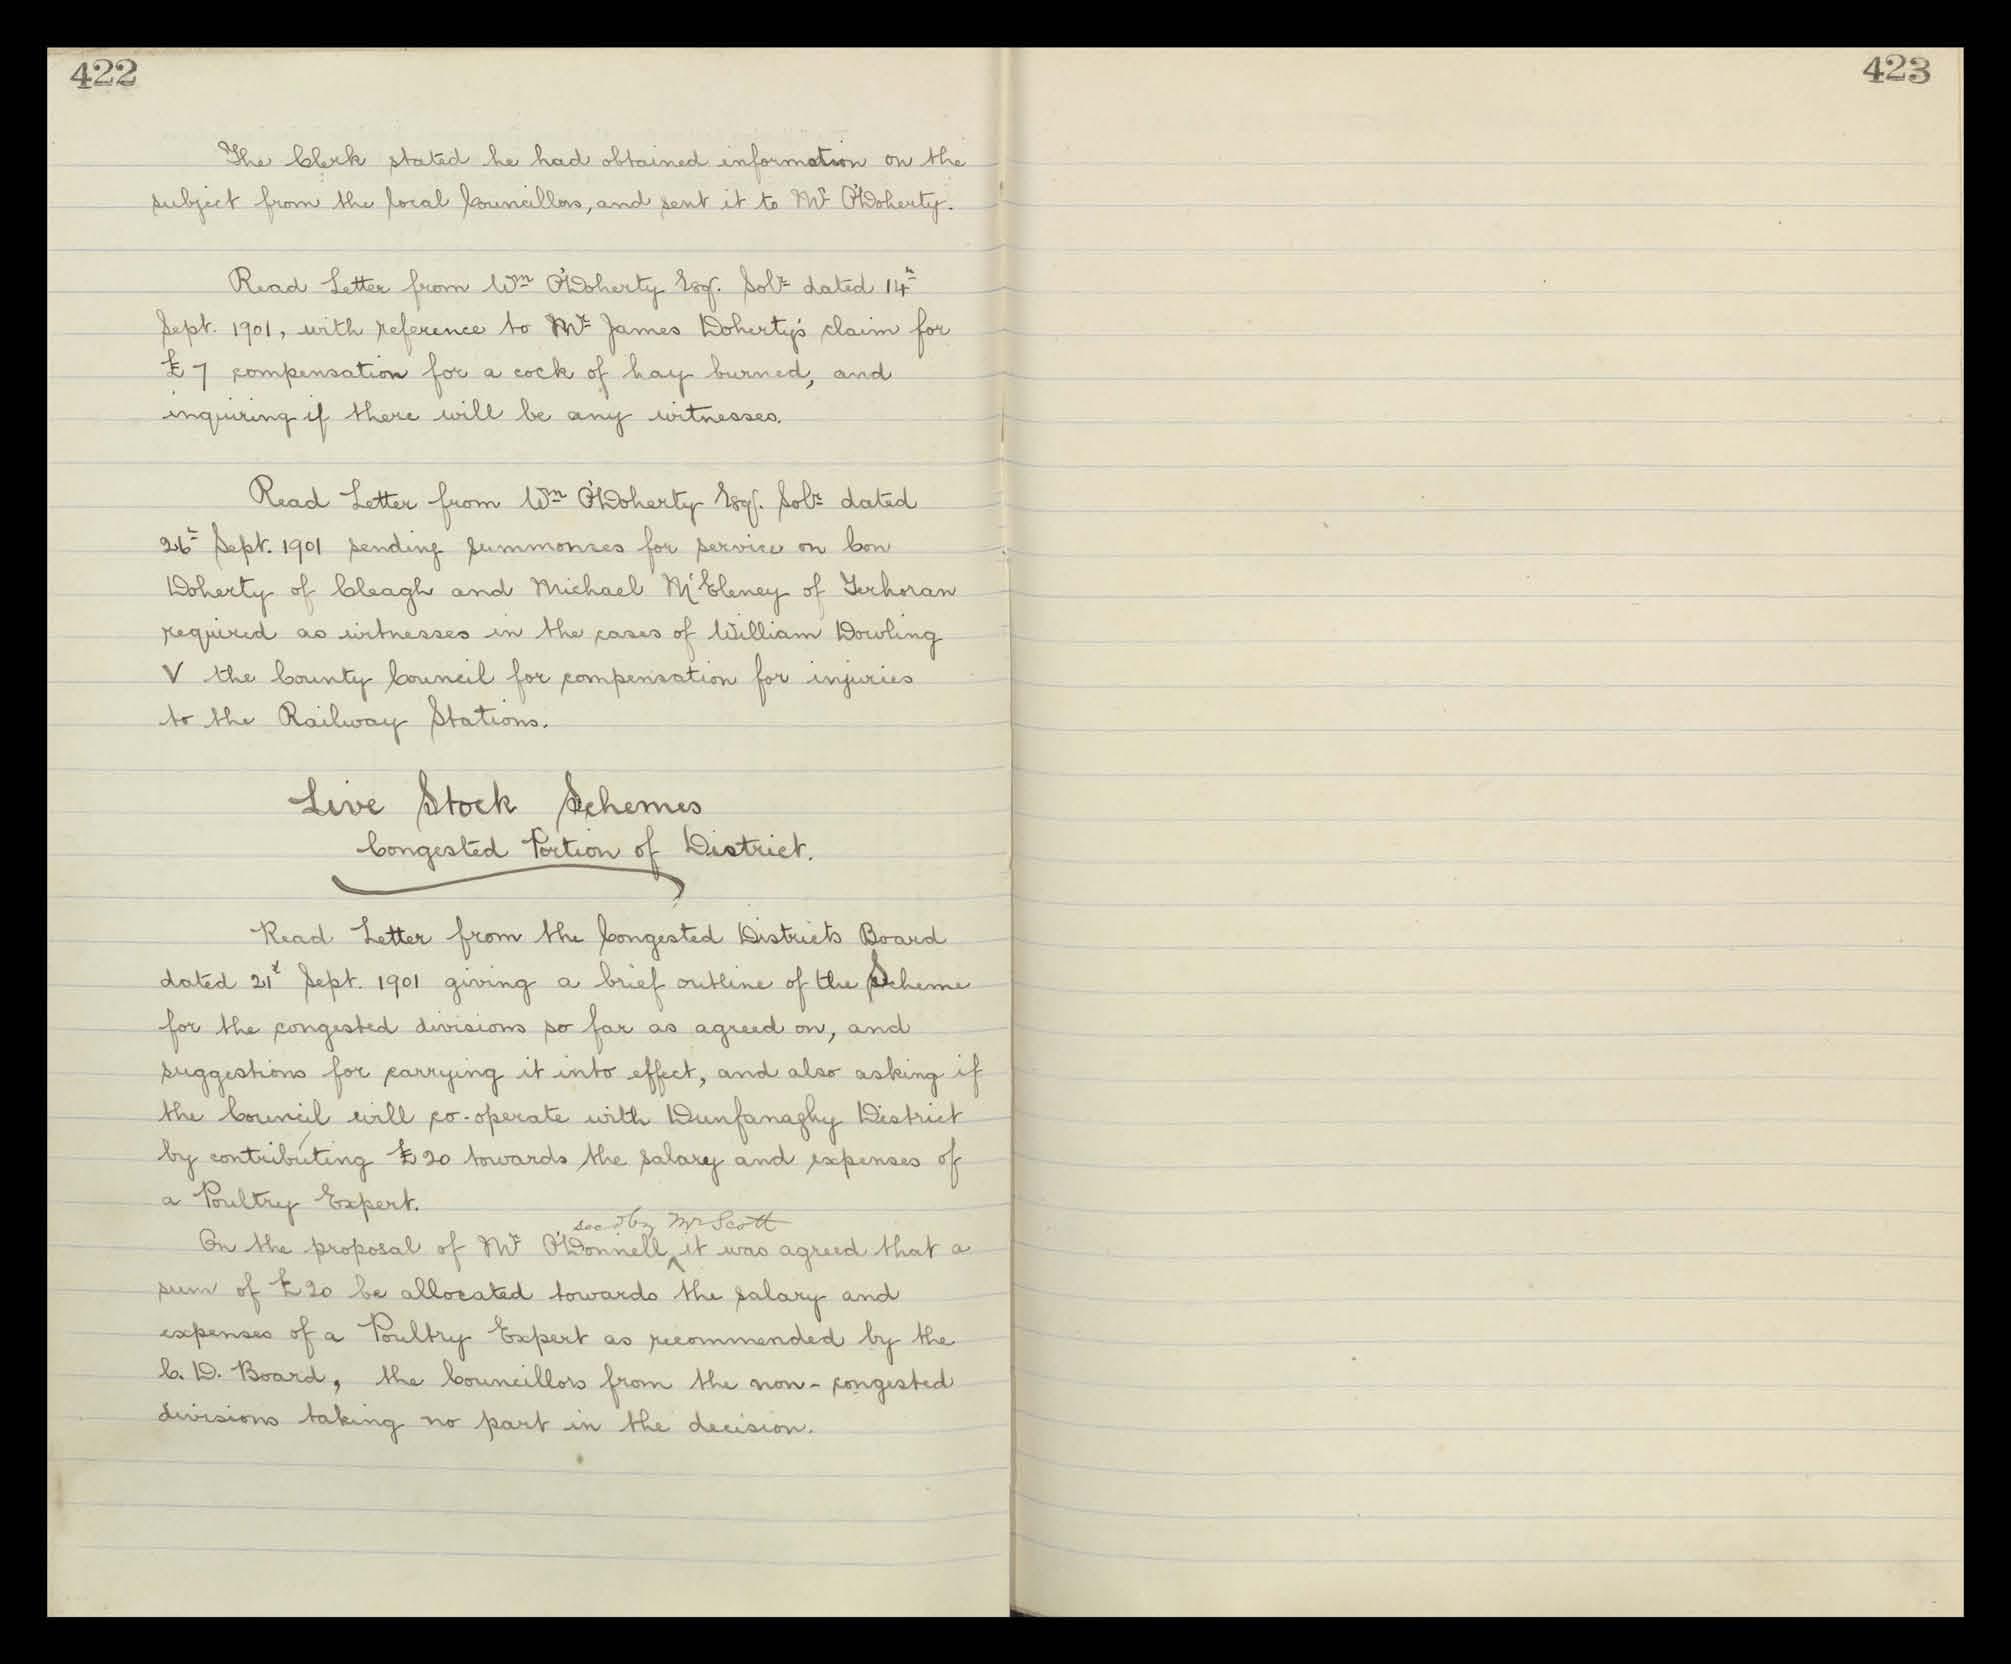 422
The Clerk stated he had obtained information on the
subject from the local Councillors, and sent it to Mr O'Doherty.
Read Letter from Wm O'Doherty Esq. Solr dated 14th
Sept. 1901, with reference to Mr James Doherty's claim for
£7 compensation for a cock of hay burned, and
inquiring if there will be any witnesses.
Read Letter from Wm O'Doherty Esq. Solr dated
26th Sept. 1901 sending summonses for service on Con
Doherty of Cleagh and Michael McEleney of Terhoran
required as witnesses in the cases of William Dowling
V the County Council for compensation for injuries
to the Railway Stations.
Live Stock Schemes
Congested Portion of District.
Read Letter from the Congested Districts Board
dated 21st Sept. 1901 giving a brief outline of the Scheme
for the congested divisions so far as agreed on, and
suggestions for carrying it into effect, and also asking if
the Council will co-operate with Dunfanaghy District
by contributing £20 towards the salary and expenses of
a Poultry Expert.
secd by Mr Scott
On the proposal of Mr O'Donnell ^ it was agreed that a
sum of £20 be allocated towards the salary and
expenses of a Poultry Expert as recommended by the
C. D. Board, the Councillors from the non-congested
divisions taking no part in the decision.
423